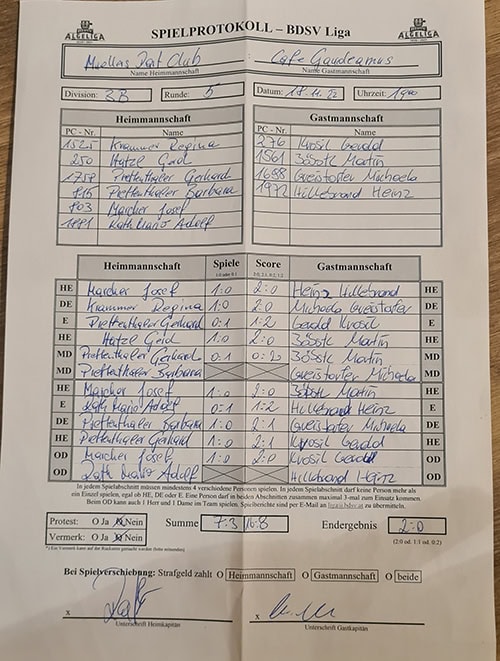 ALGELIGA SPIELPROTOKOLL – BDSV Liga ALGELIGA
Muellers Dart Club : Cafe Gaudeamus
Name Heimmannschaft Name Gastmannschaft
Division: 3B Runde: 5 Datum: 18.11.22 Uhrzeit: 19 00
Heimmannschaft Gastmannschaft
PC - Nr. Name PC - Nr. Name
1525 Krammer Regina 276 Krosil Gerald
250 Hatze Gerd 1561 Bösstk Martin
1758 Prettenthaler Gerhard 1698 Greistorfer Michaela
815 Prettenthaler Barbara 1972 Hillebrand Heinz
803 Marcher Josef
1881 Kath Mario Adolf
Heimmannschaft Spiele Score Gastmannschaft
1:0 oder 0:1 2:0, 2:1, 0:2, 1:2
HE Marcher Josef 1:0 2:0 Heinz Hillebrand HE
DE Krammer Regina 1:0 2:0 Michaela Greistorfer DE
E Prettenthaler Gerhard 0:1 1:2 Gerald Krosil E
HE Hatze Gerd 1:0 2:0 Bösstk Martin HE
MD Prettenthaler Gerhard 0:1 0:2 Bösstk Martin MD
MD Prettenthaler Barbara Greistorfer Michaela MD
HE Marcher Josef 1:0 2:0 Bösstk Martin HE
E Kath Mario Adolf 0:1 1:2 Hillebrand Heinz E
DE Prettenthaler Barbara 1:0 2:1 Greistorfer Michaela DE
HE Prettenthaler Gerhard 1:0 2:1 Krosil Gerald HE
OD Marcher Josef 1:0 2:0 Krosil Gerald OD
OD Kath Mario Adolf Hillebrand Heinz OD
In jedem Spielabschnitt müssen mindestens 4 verschiedene Personen spielen. In jedem Spielabschnitt darf keine Person mehr als
ein Einzel spielen, egal ob HE, DE oder E. Eine Person darf in beiden Abschnitten zusammen maximal 3-mal zum Einsatz kommen.
Beim OD kann auch 1 Herr und 1 Dame im Team spielen. Spielberichte sind per E-Mail an liga@bdsv.at zu übermitteln.
Protest: O Ja O Nein Summe 7:3 16:8 Endergebnis 2:0
Vermerk: O Ja O Nein (2:0 od. 1:1 od. 0:2)
Bei Spielverschiebung: Strafgeld zahlt O Heimmannschaft O Gastmannschaft O beide
x x
Unterschrift Heimkapitän Unterschrift Gastkapitän